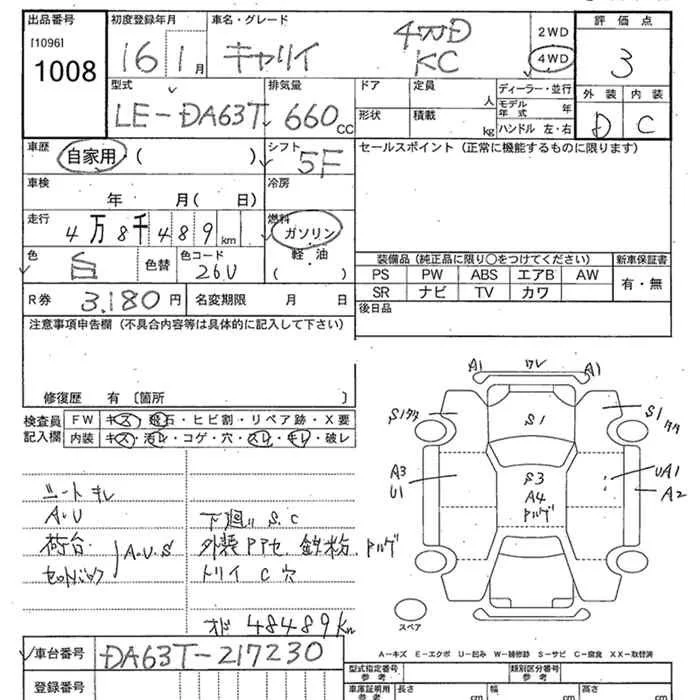 出品番号
[1096]
1008
初度登録年月
16 1月
車名・グレード
キャリイ
4WD
KC
2WD
4WD
評価点
3
外装 内装
D C
型式
LE-DA63T
排気量
660cc
ドア
定員
人
形状
積載
kg
ディーラー・並行
モデル年式 年
ハンドル 左・右
車歴
自家用・( )
シフト
5F
セールスポイント (正常に機能するものに限ります)
車検
年 月( 日)
冷房
走行
4万8千489km
燃料
ガソリン
軽・油
( )
色
白
色替
色コード
26U
装備品 (純正品に限り○をつけてください)
新車保証書
PS PW ABS エアB AW
有・無
SR ナビ TV カワ
R券
3,180円
名変期限 月 日
後日品
注意事項申告欄 (不具合内容等は具体的に記入して下さい)
修復歴 有 〔箇所 〕
検査員
記入欄
FW キズ・飛石・ヒビ割・リペア跡・X要
内装 キズ・汚レ・コゲ・穴・スレ・キレ・破レ
シートキレ
A・U
荷台
A・U・S
下廻り S.C
外装PPセ. 鉄粉.
C穴
48489km
A1 ワレ A1
S1
S1
S1
A3
U1
S3
A4
UA1
A2
スペア
A-キズ E-エクボ U-凹み W-補修跡 S-サビ C-腐食 XX-取替済
車台番号
DA63T-217230
登録番号
型式指定番号
参考
類別区分番号
参考
車庫証明用
参考
長さ
cm
幅
cm
高さ
cm